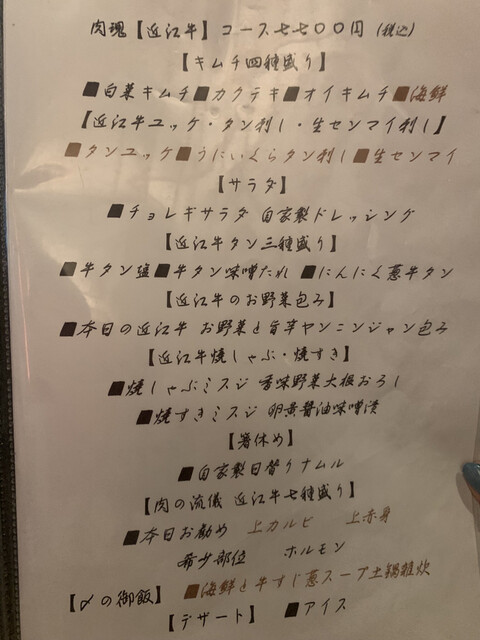 肉魂【近江牛】コース七七〇〇円(税込)
【キムチ四種盛り】
■白菜キムチ■カクテキ■オイキムチ■海鮮
【近江牛ユッケ・タン刺し・生センマイ刺し】
■タンユッケ■うにいくらタン刺し■生センマイ
【サラダ】
■チョレギサラダ 自家製ドレッシング
【近江牛タン三種盛り】
■牛タン塩■牛タン味噌だれ ■にんにく葱牛タン
【近江牛のお野菜包み】
■本日の近江牛 お野菜と旨辛ヤンニンジャン包み
【近江牛焼しゃぶ・焼すき】
■焼しゃぶミスジ 香味野菜大根おろし
■焼すきミスジ 卵黄醤油味噌漬
【箸休め】
■自家製日替りナムル
【肉の流儀 近江牛七種盛り】
■本日お勧め 上カルビ 上赤身
希少部位 ホルモン
【〆の御飯】 ■海鮮と牛すじ葱スープ土鍋雑炊
【デザート】 ■アイス